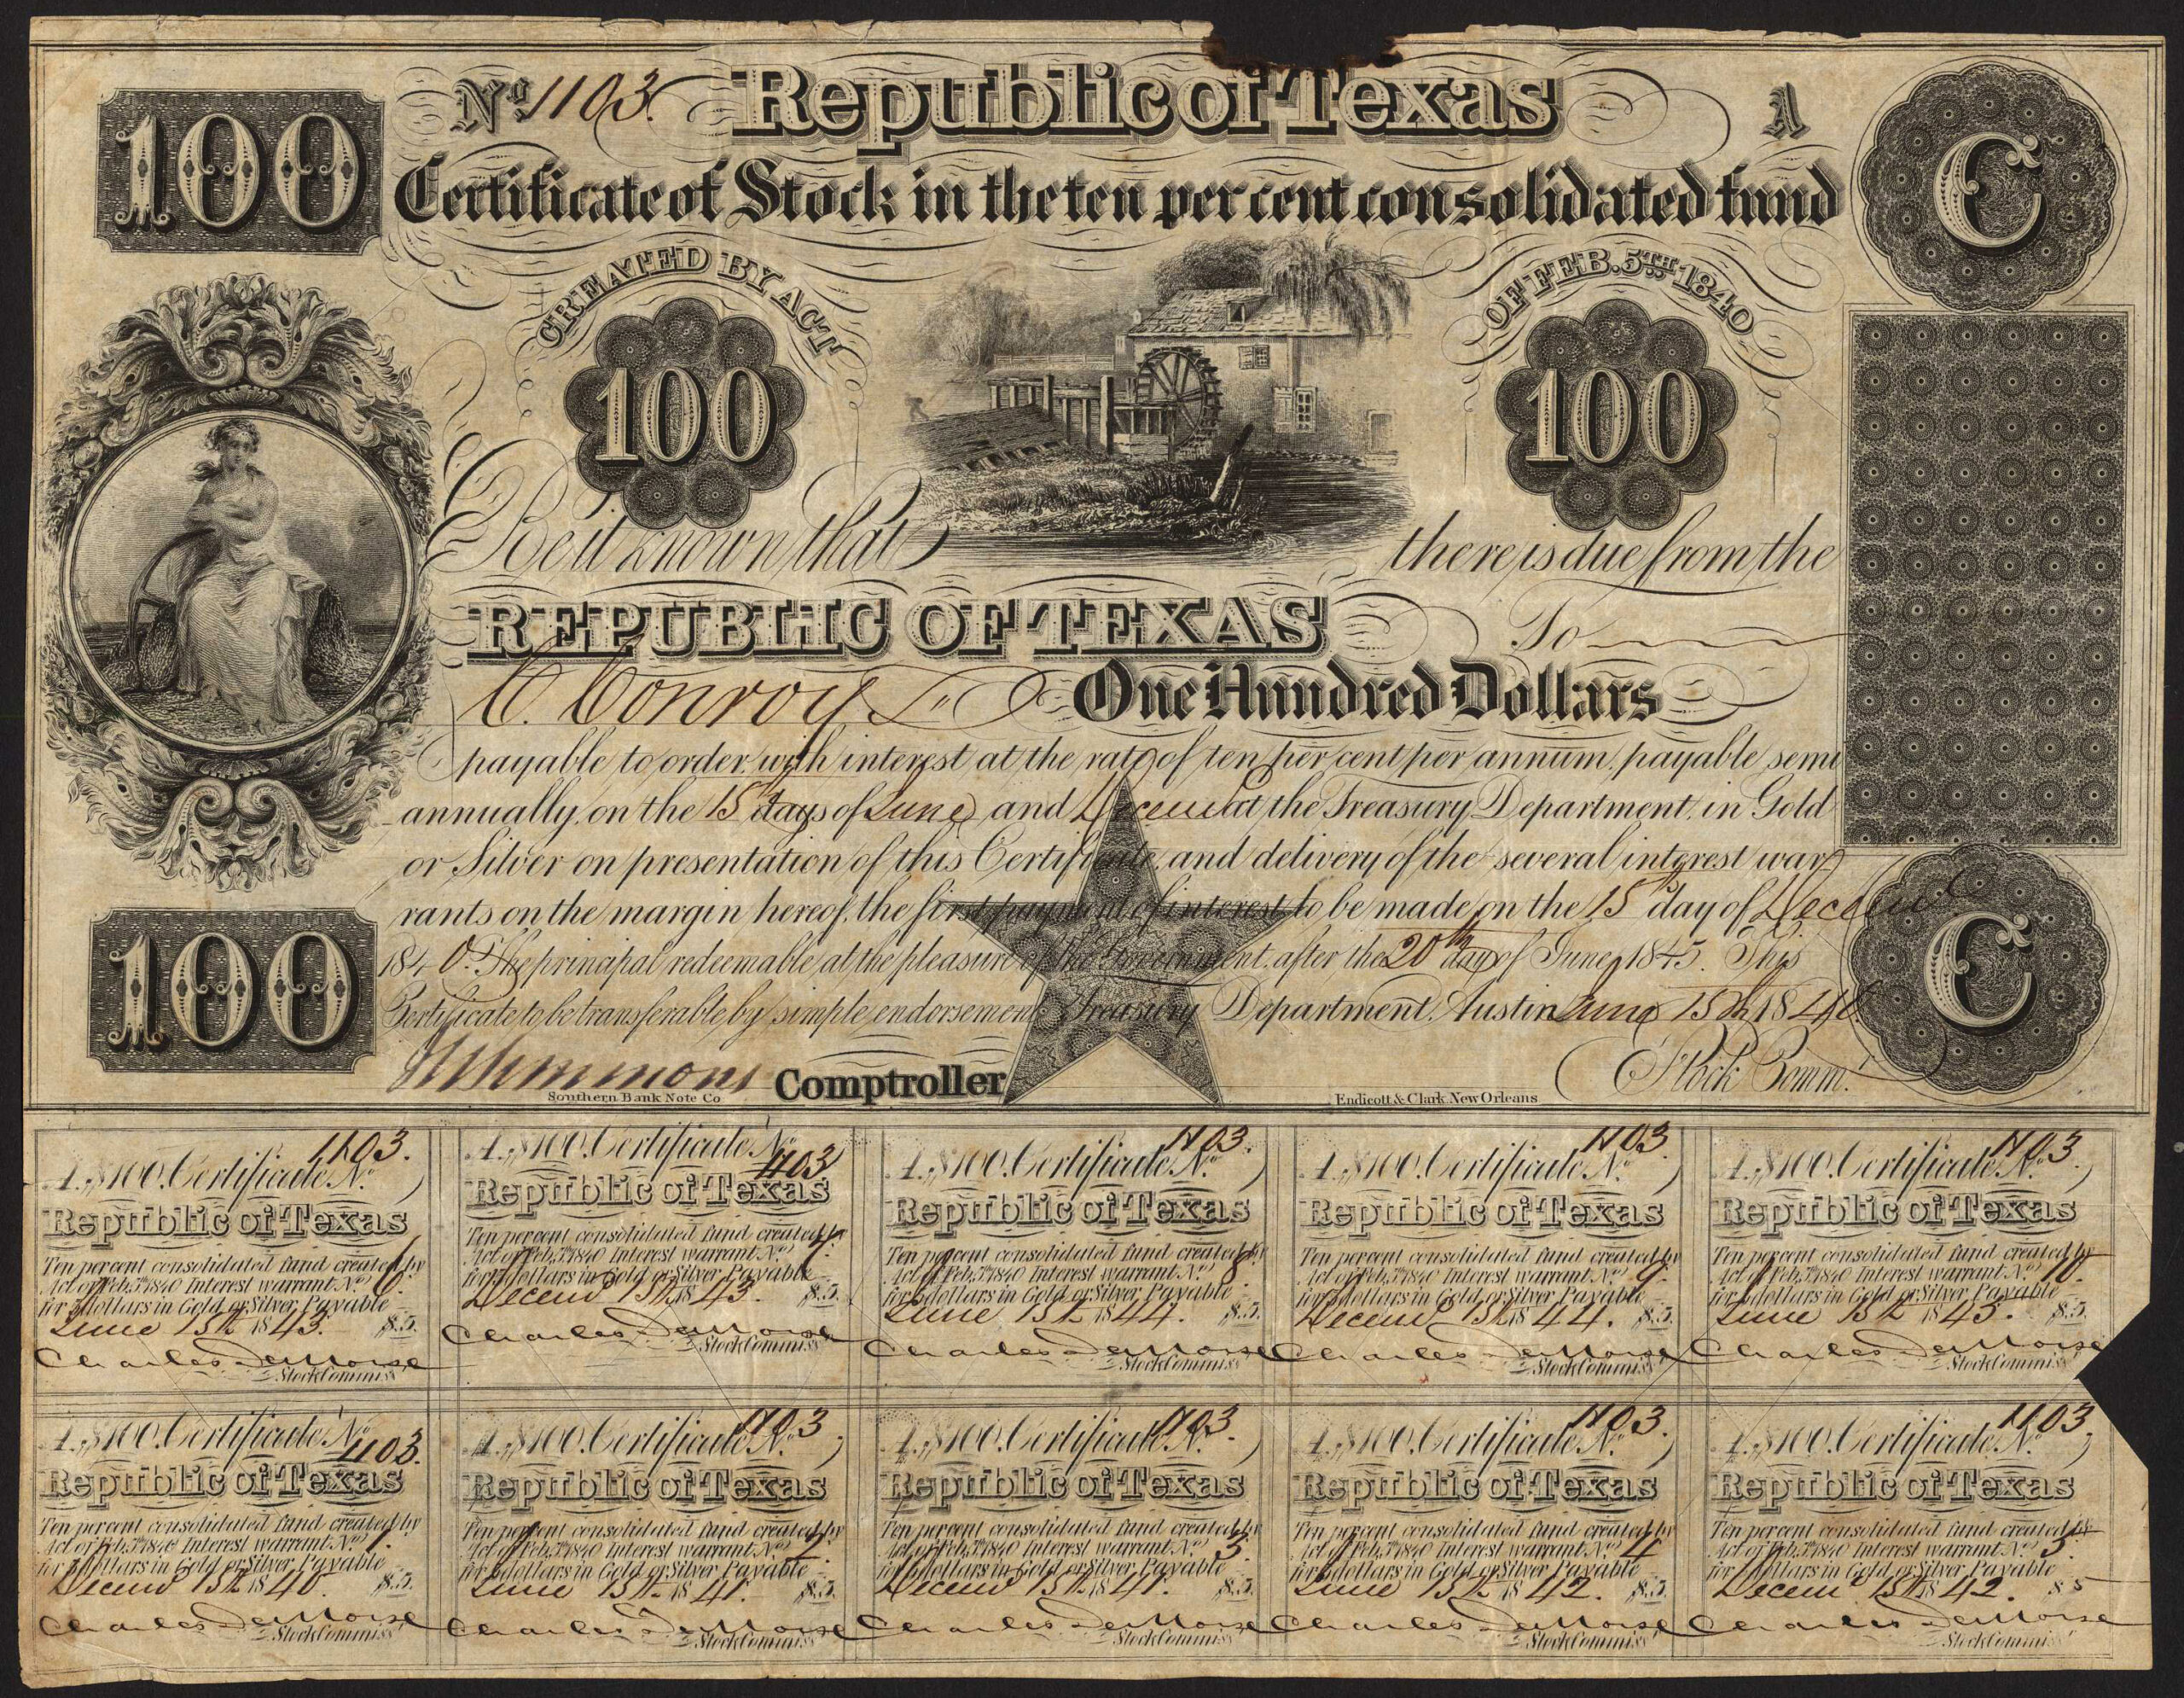 100
No 1103.
Republic of Texas
A
C
Certificate of Stock in the ten per cent consolidated fund
CREATED BY ACT
OF FEB. 5TH 1840
100
100
Be it known that
there is due from the
REPUBLIC OF TEXAS
To
C. Conroy
One Hundred Dollars
payable to order, with interest at the rate of ten per cent per annum, payable semi
annually, on the 15th days of June and Decem at the Treasury Department, in Gold
or Silver on presentation of this Certificate, and delivery of the several interest war
rants on the margin hereof, the first payment of interest to be made on the 15th day of Decem
1840. The principal redeemable at the pleasure of the Government, after the 20th day of June, 1845. This
Certificate to be transferable by simple endorsement Treasury Department, Austin June 15th 1840.
100
C
Comptroller
Stock Comm.
Southern Bank Note Co
Endicott & Clark. New Orleans
A. $100. Certificate No. 1103.
Republic of Texas
Ten per cent consolidated fund created by
Act of Feb. 5th 1840 Interest warrant No. 6.
for 5 dollars in Gold or Silver Payable
June 15th 1843. $5.
Charles DeMorse
Stock Commiss
A. $100. Certificate No. 1103
Republic of Texas
Ten per cent consolidated fund created by
Act of Feb. 5th 1840 Interest warrant No. 7.
for 5 dollars in Gold or Silver Payable
Decem 15th 1843. $5.
Charles DeMorse
Stock Commiss
A. $100. Certificate No. 1103.
Republic of Texas
Ten per cent consolidated fund created by
Act of Feb. 5th 1840 Interest warrant No. 8.
for 5 dollars in Gold or Silver Payable
June 15th 1844. $5.
Charles DeMorse
Stock Commiss
A. $100. Certificate No. 1103.
Republic of Texas
Ten per cent consolidated fund created by
Act of Feb. 5th 1840 Interest warrant No. 9.
for 5 dollars in Gold or Silver Payable
Decem 15th 1844. $5.
Charles DeMorse
Stock Commiss
A. $100. Certificate No. 1103.
Republic of Texas
Ten per cent consolidated fund created by
Act of Feb. 5th 1840 Interest warrant No. 10.
for 5 dollars in Gold or Silver Payable
June 15th 1845. $5.
Charles DeMorse
Stock Commiss
A. $100. Certificate No. 1103.
Republic of Texas
Ten per cent consolidated fund created by
Act of Feb. 5th 1840 Interest warrant No. 1.
for 5 dollars in Gold or Silver Payable
Decem 15th 1840. $5.
Charles DeMorse
Stock Commiss
A. $100. Certificate No. 1103
Republic of Texas
Ten per cent consolidated fund created by
Act of Feb. 5th 1840 Interest warrant No. 2.
for 5 dollars in Gold or Silver Payable
June 15th 1841. $5.
Charles DeMorse
Stock Commiss
A. $100. Certificate No. 1103.
Republic of Texas
Ten per cent consolidated fund created by
Act of Feb. 5th 1840 Interest warrant No. 3.
for 5 dollars in Gold or Silver Payable
Decem 15th 1841. $5.
Charles DeMorse
Stock Commiss
A. $100. Certificate No. 1103.
Republic of Texas
Ten per cent consolidated fund created by
Act of Feb. 5th 1840 Interest warrant No. 4
for 5 dollars in Gold or Silver Payable
June 15th 1842. $5.
Charles DeMorse
Stock Commiss
A. $100. Certificate No. 1103
Republic of Texas
Ten per cent consolidated fund created by
Act of Feb. 5th 1840 Interest warrant No. 5.
for 5 dollars in Gold or Silver Payable
Decem 15th 1842. $5
Charles DeMorse
Stock Commiss